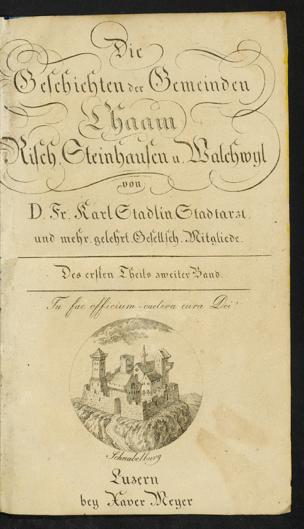 Die
Geschichten der Gemeinden
Chaam
Risch, Steinhausen u. Walchwyl
von
D. Fr. Karl Stadlin Stadtarzt,
und mehr. gelehrt. Gesellsch. Mitgliede.
Des ersten Theils zweiter Band.
Tu fac officium - caetera cura Dei!
Schnabelburg
Luzern
bey Xaver Meyer